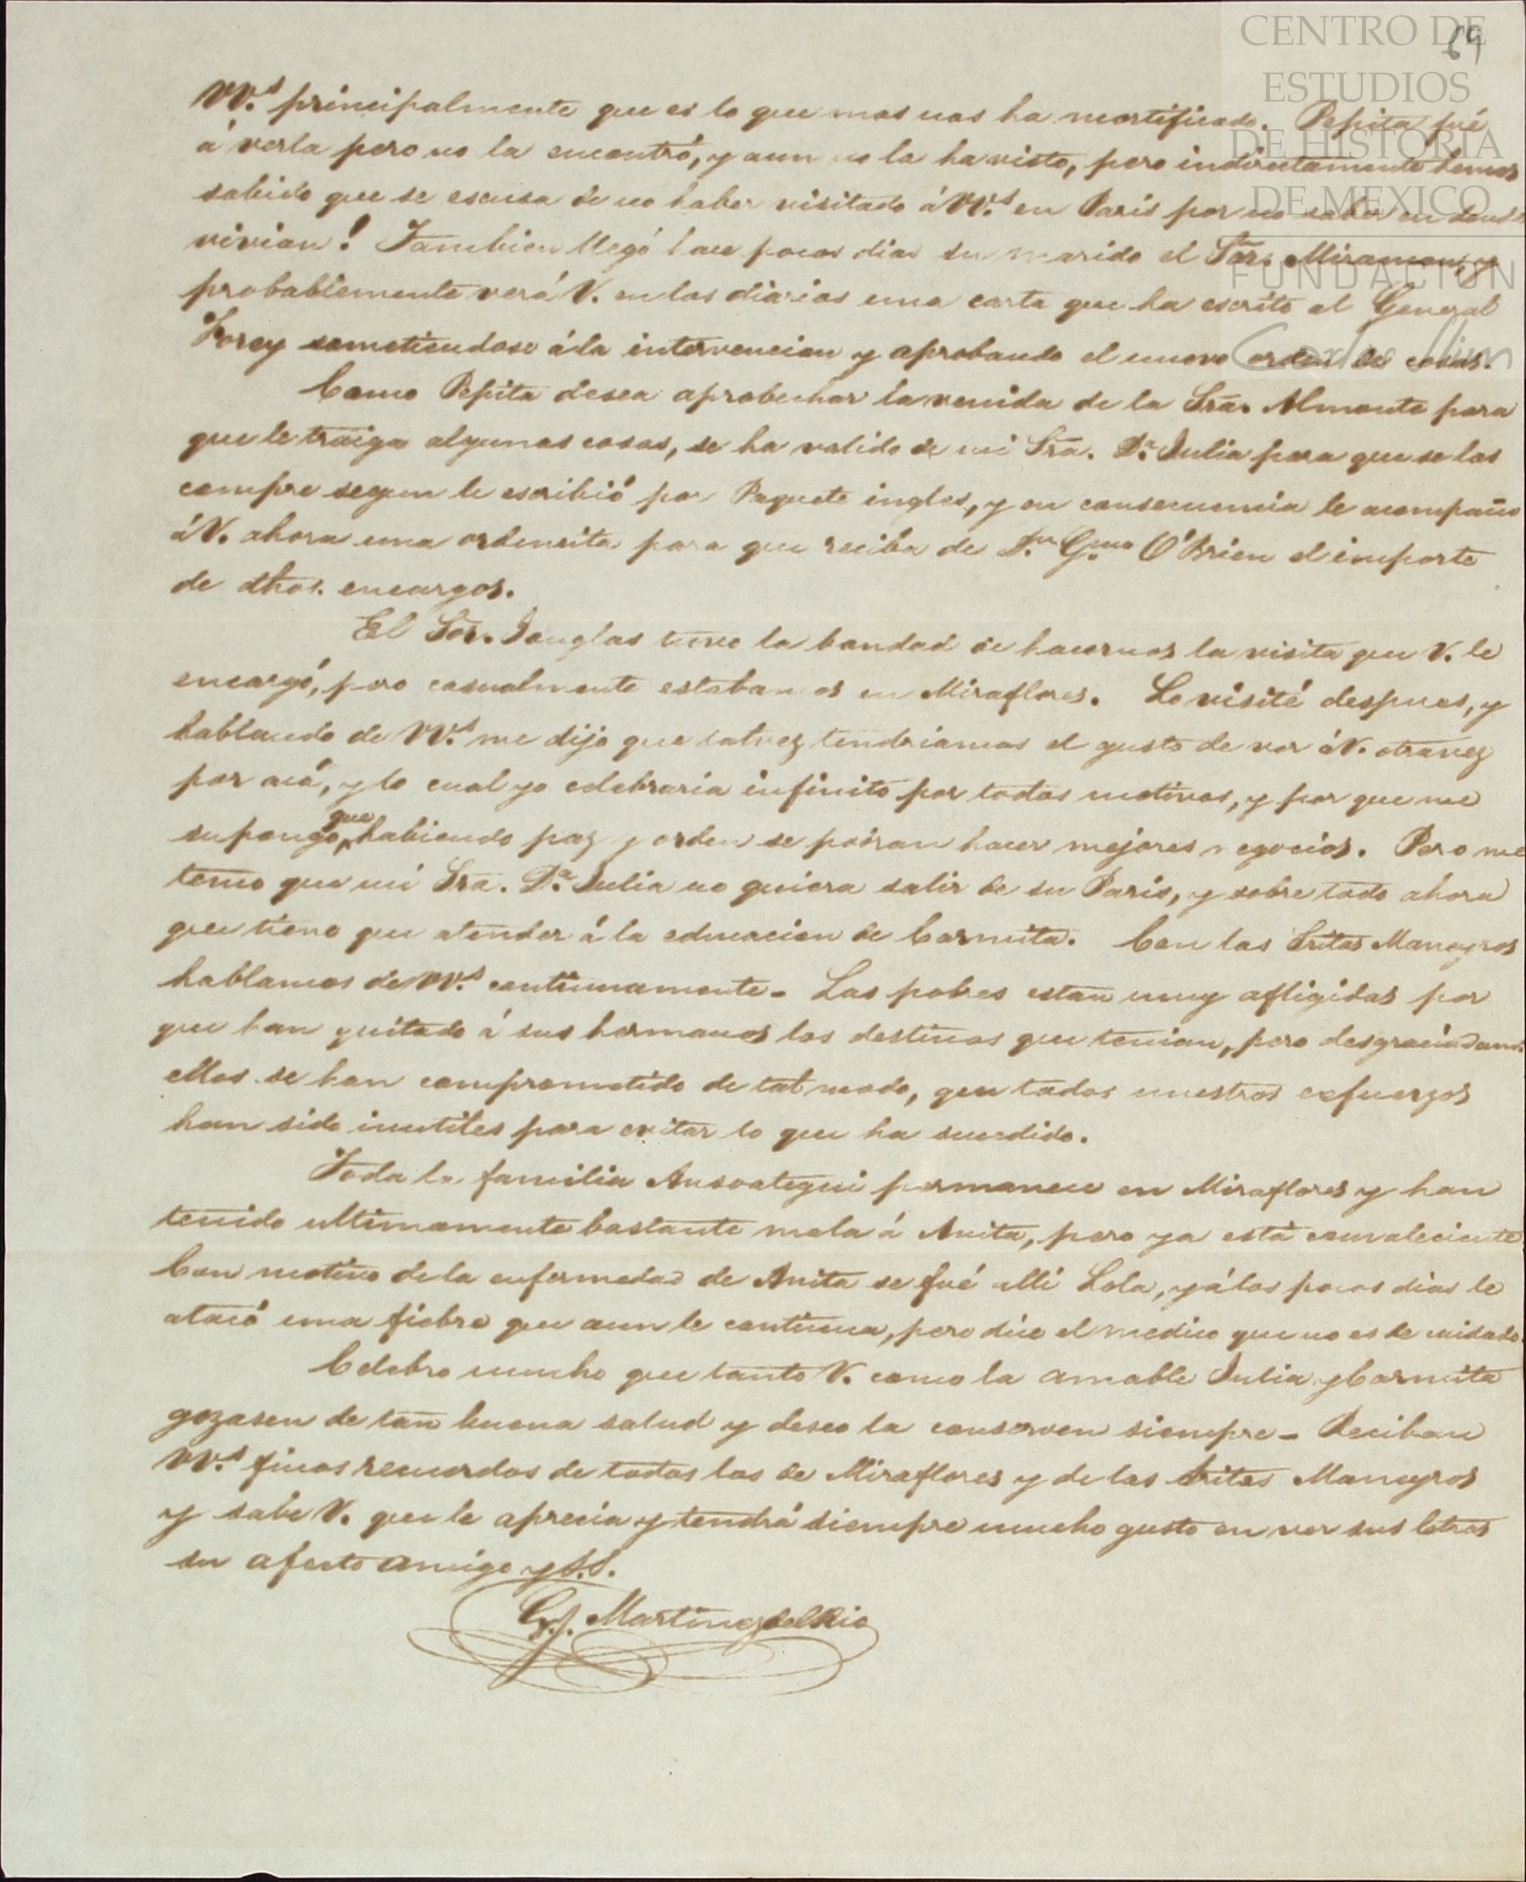 69
CENTRO DE
ESTUDIOS
DE HISTORIA
DE MEXICO
FUNDACION
Carlos Slim
VV.s principalmente que es lo que mas nos ha mortificado. Pepita fué
á verla pero no la encontró, y aun no la ha visto, pero indirectamente hemos
sabido que se escusa de no haber visitado á VV.s en Paris por no saber en donde
vivian! Tambien llegó hace pocos dias su marido el Sor. Miramon, y
probablemente verá V. en los diarios una carta que ha escrito al General
Forey sometiendose á la intervencion y aprobando el nuevo orden de cosas.
Como Pepita desea aprobechar la venida de la Sra. Almonte para
que le traiga algunas cosas, se ha valido de mi Sra. Da. Julia para que se las
compre segun le escribió por Paquete ingles, y en consecuencia le acompaño
á V. ahora una ordencita para que reciba de Dn. Gmo. O'Brien el importe
de dhos. encargos.
El Sor. Douglas tuvo la bondad de hacernos la visita que V. le
encargó, pero casualmente estabamos en Miraflores. Lo visité despues, y
hablando de VV.s me dijo que talvez tendriamos el gusto de ver á V. otravez
por acá, y lo cual yo celebraria infinito por todos motivos, y por que me
supongo que habiendo paz y orden se podran hacer mejores negocios. Pero me
temo que mi Sra. Da. Julia no quiera salir de su Paris, y sobre todo ahora
que tiene que atender á la educacion de Carmita. Con las Sritas Maneyros
hablamos de VV.s continuamente - Las pobres estan muy afligidas por
que han quitado á sus hermanos los destinos que tenian, pero desgraciadam.
ellos se han comprometido de tal modo, que todos nuestros esfuerzos
han sido inutiles para evitar lo que ha sucedido.
Toda la familia Ansoategui permanece en Miraflores y han
tenido ultimamente bastante mala á Anita, pero ya está convaleciente.
Con motivo de la enfermedad de Anita se fué allí Lola, y á los pocos dias le
atacó una fiebre que aun le continua, pero dice el medico que no es de cuidado
Celebro mucho que tanto V. como la amable Julia y Carmita
gozasen de tan buena salud y deseo la conserven siempre - Reciban
VV.s finos recuerdos de todos los de Miraflores y de las Sritas Maneyros
y sabe V. que le aprecia y tendrá siempre mucho gusto en ver sus letras
su afecto amigo y S.S.
G. J. Martinez del Rio